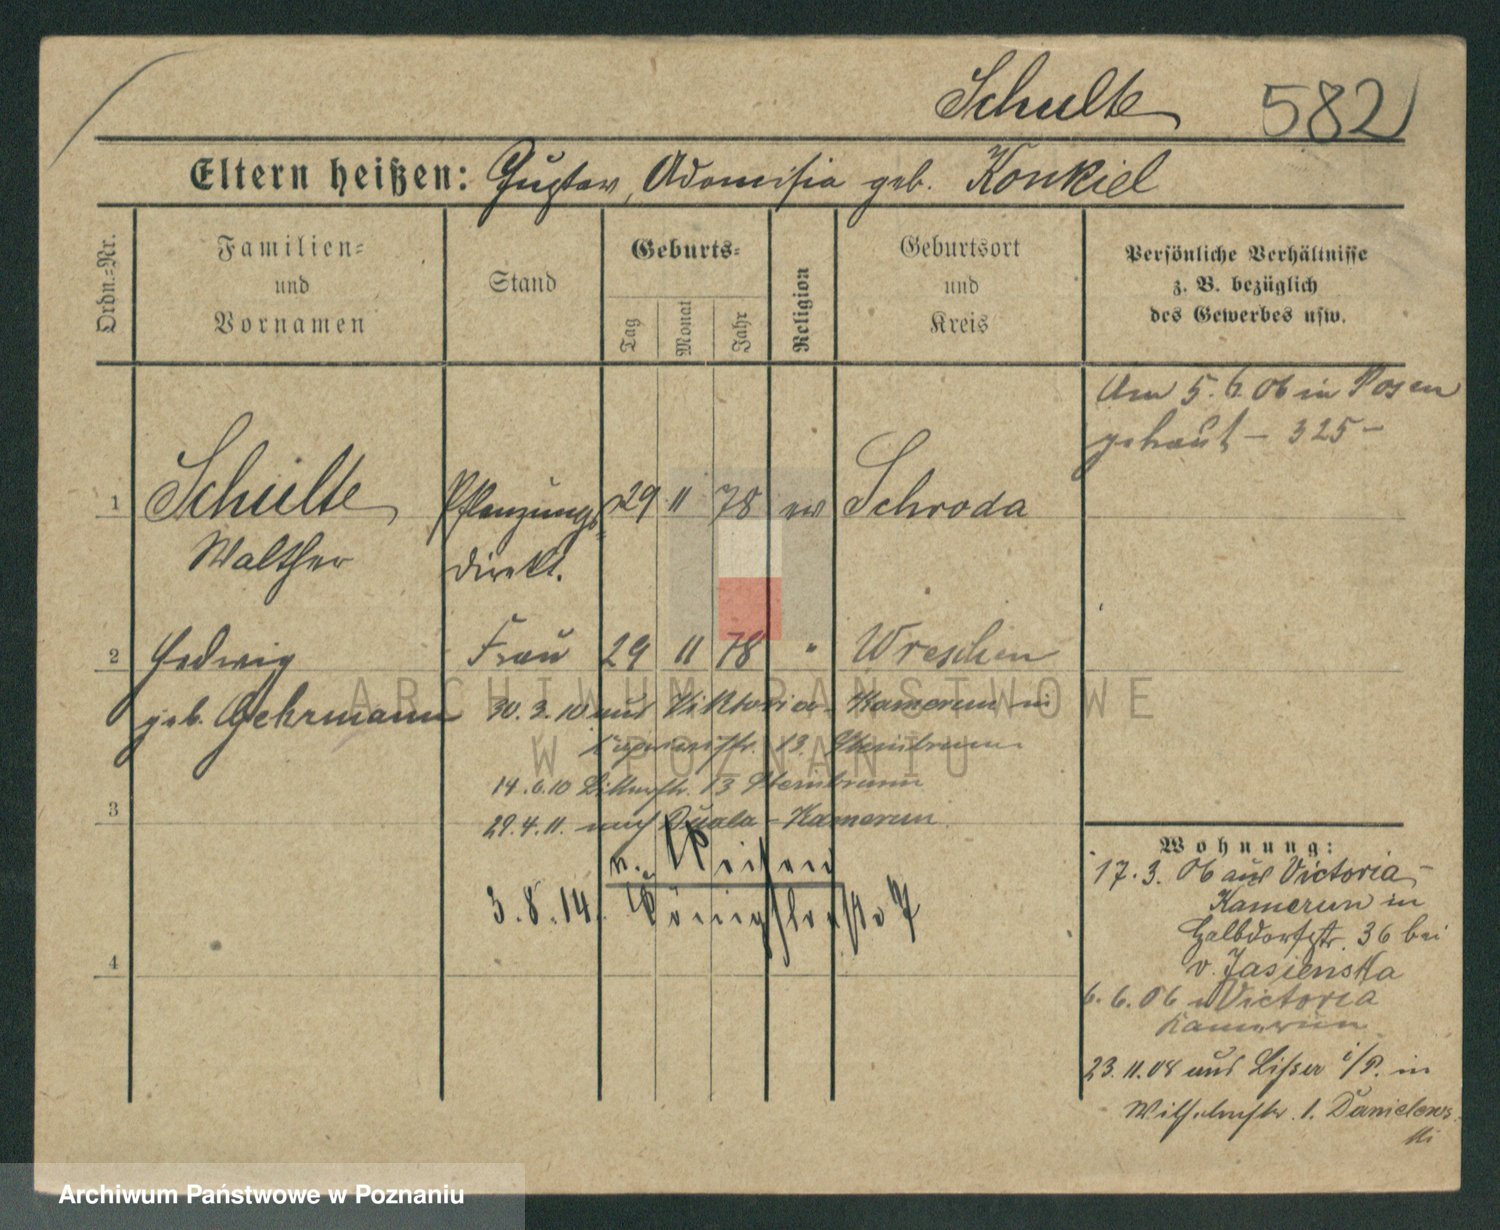 Schulte 582
Eltern heißen: Gustav, Adomisia geb. Konkiel
Ordn.=Nr.
Familien=
und
Vornamen
Stand
Geburts=
Tag
Monat
Jahr
Religion
Geburtsort
und
Kreis
Persönliche Verhältnisse
z. B. bezüglich
des Gewerbes usw.
Am 5. 6. 06 in Posen
getraut – 325 –
1 Schulte Pflanzungs= 29 11 78 ev Schroda
Walther direkt.
2 Hedwig Frau 29 11 78 " Wreschen
geb. Gehrmann 30. 3. 10 aus Viktoria - Kamerun in
13
14.6.10 13
3 29. 4. 11. nach Duala - Kamerun
n.
3. 8. 14. Königstraße 7
4
Wohnung:
17. 3. 06 aus Victoria -
Kamerun in
Halbdorfstr. 36 bei
v. Jasienska
6. 6. 06 n Victoria
Kamerun
23. 11. 08 aus i/P. in
Wilhelmstr. 1. Danielews
ki
ARCHIWUM PAŃSTWOWE
W POZNANIU
Archiwum Państwowe w Poznaniu